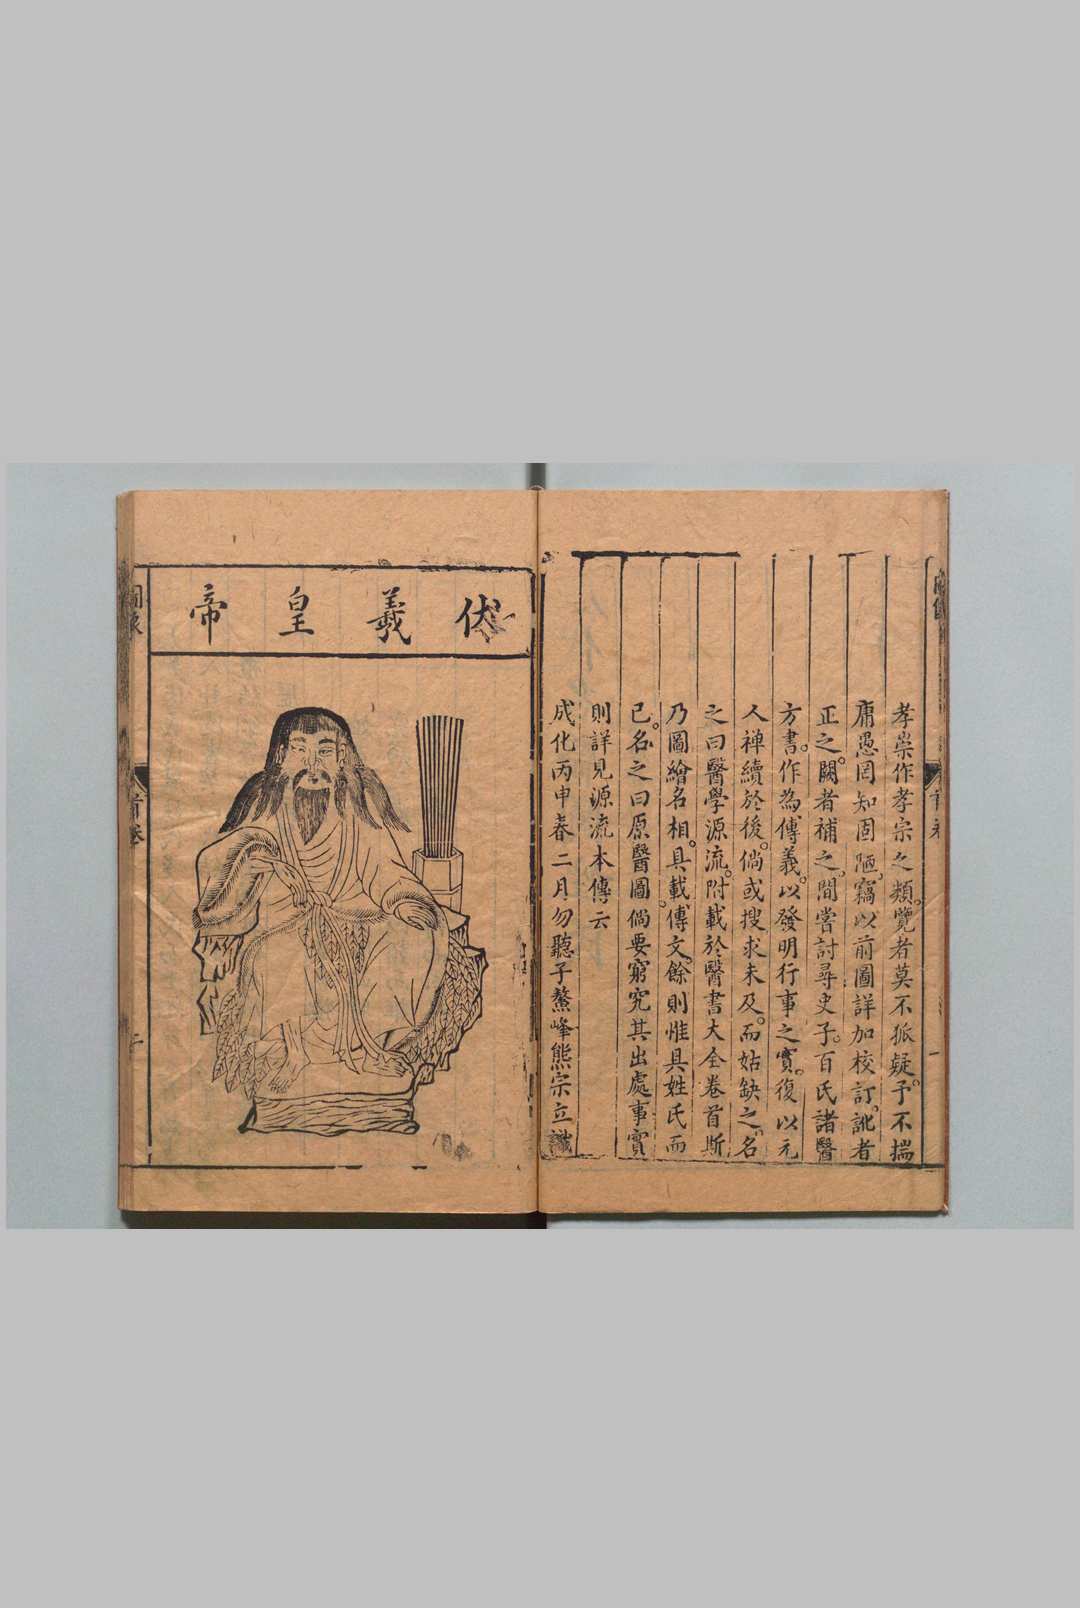 孝崇作孝宗之類覽者莫不狐疑予不揣
庸愚罔知固陋竊以前圖詳加校訂訛者
正之闕者補之間嘗討尋史子百氏諸醫
方書作為傳義以發明行事之實復以元
人禅續於後倘或搜求未及而姑缺之名
之曰醫學源流附載於醫書大全卷首斯
乃圖繪名相具載傳文餘則惟具姓氏而
已名之曰原醫圖倘要窮究其出處事實
則詳見源流本傳云
成化丙申春二月勿聽子鰲峰熊宗立識
伏羲皇帝
首卷